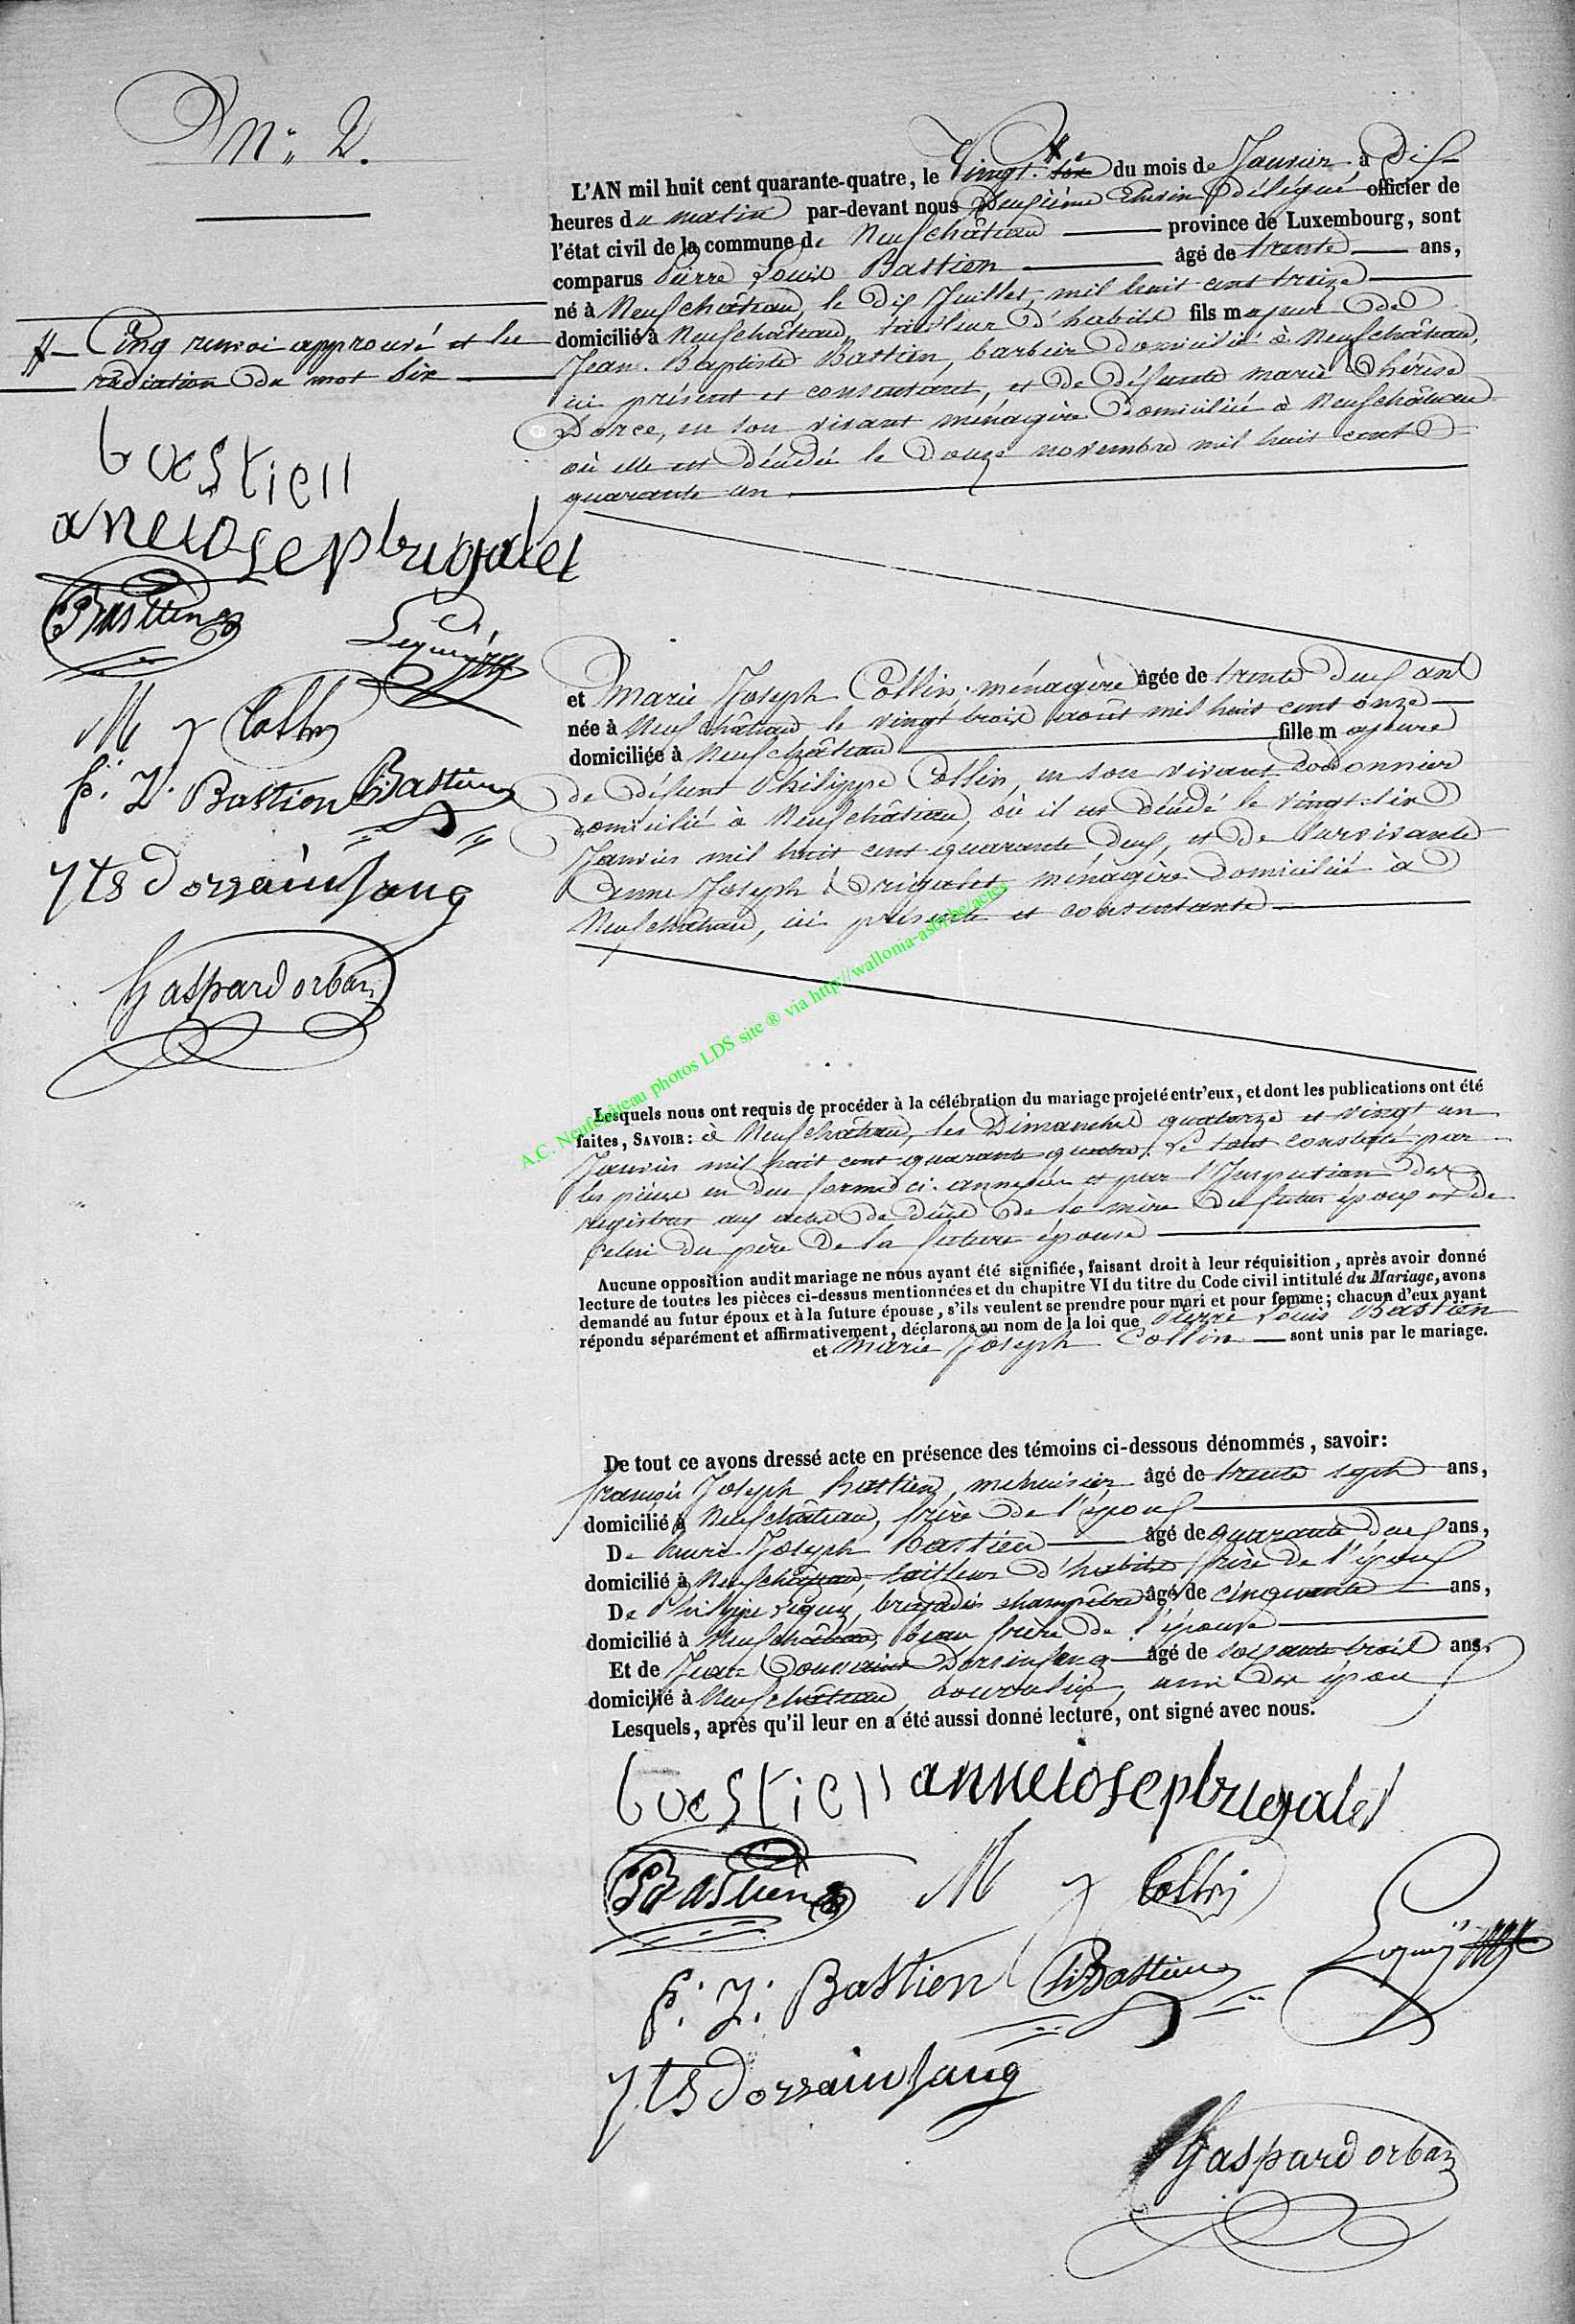 N° 2.
L'AN mil huit cent quarante-quatre, le Vingt # six du mois de Janvier à Dix
heures du matin par-devant nous Deuxième Echevin Délégué officier de
l'état civil de la commune de Neufchâteau province de Luxembourg, sont
comparus Pierre Louis Bastien âgé de trente ans,
né à Neufchâteau, le Dix Juillet, mil huit cent treize
domicilié à Neufchâteau, tailleur D'habits fils majeur De
Jean-Baptiste Bastien, barbier domicilié à Neufchâteau,
ici présent et consentant, et De Défunte marie Thérèse
Dorce, en son vivant ménagère Domiciliée à Neufchâteau
où elle est Décédée le Douze novembre mil huit cent
quarante un.
# Cinq renvoi approuvé et la
radiation du mot Six
bastien
anneiosepbrigalet
Bastien
Lequeu
M J Collin
f. J. Bastien HBastien
JtsDorzainfang
Gaspard orban
et Marie Joseph Collin, ménagère âgée de trente Deux ans
née à Neufchâteau le vingt trois août mil huit cent onze
domiciliée à Neufchâteau fille majeure
de Défunt Philippe Collin, en son vivant Cordonnier
domicilié à Neufchâteau, où il est Décédé le vingt six
Janvier mil huit cent quarante deux, et De survivante
Anne Joseph Brigalet ménagère Domiciliée à
Neufchâteau, ici présente et consentante
A.C. Neufchâteau photos LDS site ® via http://wallonia-asbl.be/actes
Lesquels nous ont requis de procéder à la célébration du mariage projeté entr'eux, et dont les publications ont été
faites, SAVOIR: à Neufchâteau, les Dimanches quatorze et vingt un
Janvier mil huit cent quarante quatre. Le tout constaté par
les pièces en due forme ci-annexées et par l'Inspection des
registres aux actes de Décès de la mère du futur époux et de
Celui du père de la future épouse
Aucune opposition audit mariage ne nous ayant été signifiée, faisant droit à leur réquisition, après avoir donné
lecture de toutes les pièces ci-dessus mentionnées et du chapitre VI du titre du Code civil intitulé du Mariage, avons
demandé au futur époux et à la future épouse, s'ils veulent se prendre pour mari et pour femme; chacun d'eux ayant
répondu séparément et affirmativement, déclarons au nom de la loi que Pierre Louis Bastien
et Marie Joseph Collin sont unis par le mariage.
De tout ce avons dressé acte en présence des témoins ci-dessous dénommés, savoir:
françois Joseph Bastien, menuisier âgé de trente sept ans,
domicilié à Neufchâteau, frère De l'époux
De henri Joseph Bastien âgé de quarante deux ans,
domicilié à Neufchâteau, tailleur d'habits frère de l'époux
De Philippe Lequeu, brigadier champêtre âgé de cinquante ans,
domicilié à Neufchâteau, beau frère de l'épouse
Et de Jean Toussaint Dorzinfang âgé de soixante trois ans,
domicilié à Neufchâteau, ami des époux
Lesquels, après qu'il leur en a été aussi donné lecture, ont signé avec nous.
bastien anneiosepbrigalet
Bastien M J Collin
Lequeu
f. J. Bastien HBastien
JtsDorzainfang
Gaspard orban